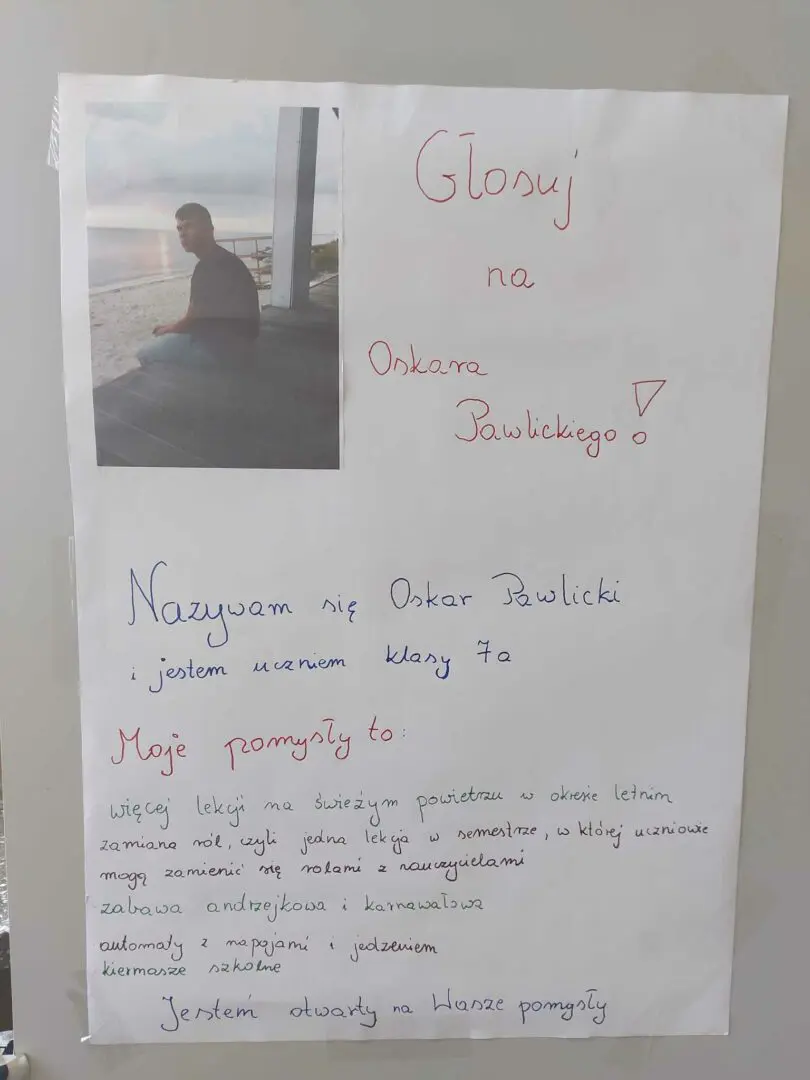 Głosuj
na
Oskara
Pawlickiego!
Nazywam się Oskar Pawlicki
i jestem uczniem klasy 7a
Moje pomysły to:
więcej lekcji na świeżym powietrzu w okresie letnim
zamiana ról, czyli jedna lekcja w semestrze, w której uczniowie
mogą zamienić się rolami z nauczycielami
zabawa andrzejkowa i karnawałowa
automaty z napojami i jedzeniem
kiermasze szkolne
Jestem otwarty na Wasze pomysły